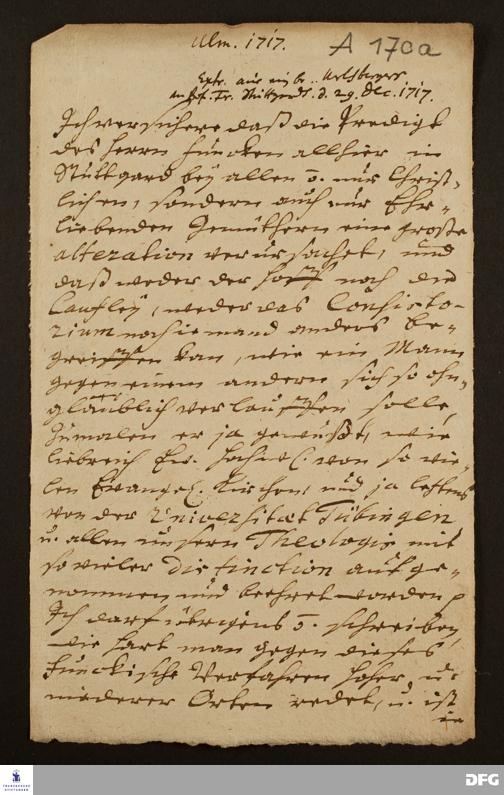 Ulm. 1717.
A 170a
Extr. aus ein br. Urlsperger
an Prof. Fr. Stuttgardt. d. 29. Dec. 1717.
Ich versichere daß die Predigt
des Herrn Funcken allhier in
Stuttgard bey allen õ. nur Christ-
lichen, sondern auch nur Ehr-
liebenden Gemüthern eine große
alteration verursachet, und
daß weder der Hoff noch die
Cantzley, weder das Consisto-
rium noch jemand anders be-
greiffen kan, wie ein Mann
gegen einem andern sich so ohn-
gläublich verlauffen solle,
Zumalen er ja gewußt, wie
liebreich Ew. von so vie-
len Evangel. Kirchen, und ja letztens
von der Universitæt Tübingen
u. allen unsern Theologis mit
so vieler distinction aufge-
nommen und beehret worden?
Ich darf übrigens õ. schreiben,
wie hart man gegen dieses
Funckische Verfahren hoher u.
niederer Orten redet, u. ist
in
FRANCKESCHE STIFTUNGEN
DFG